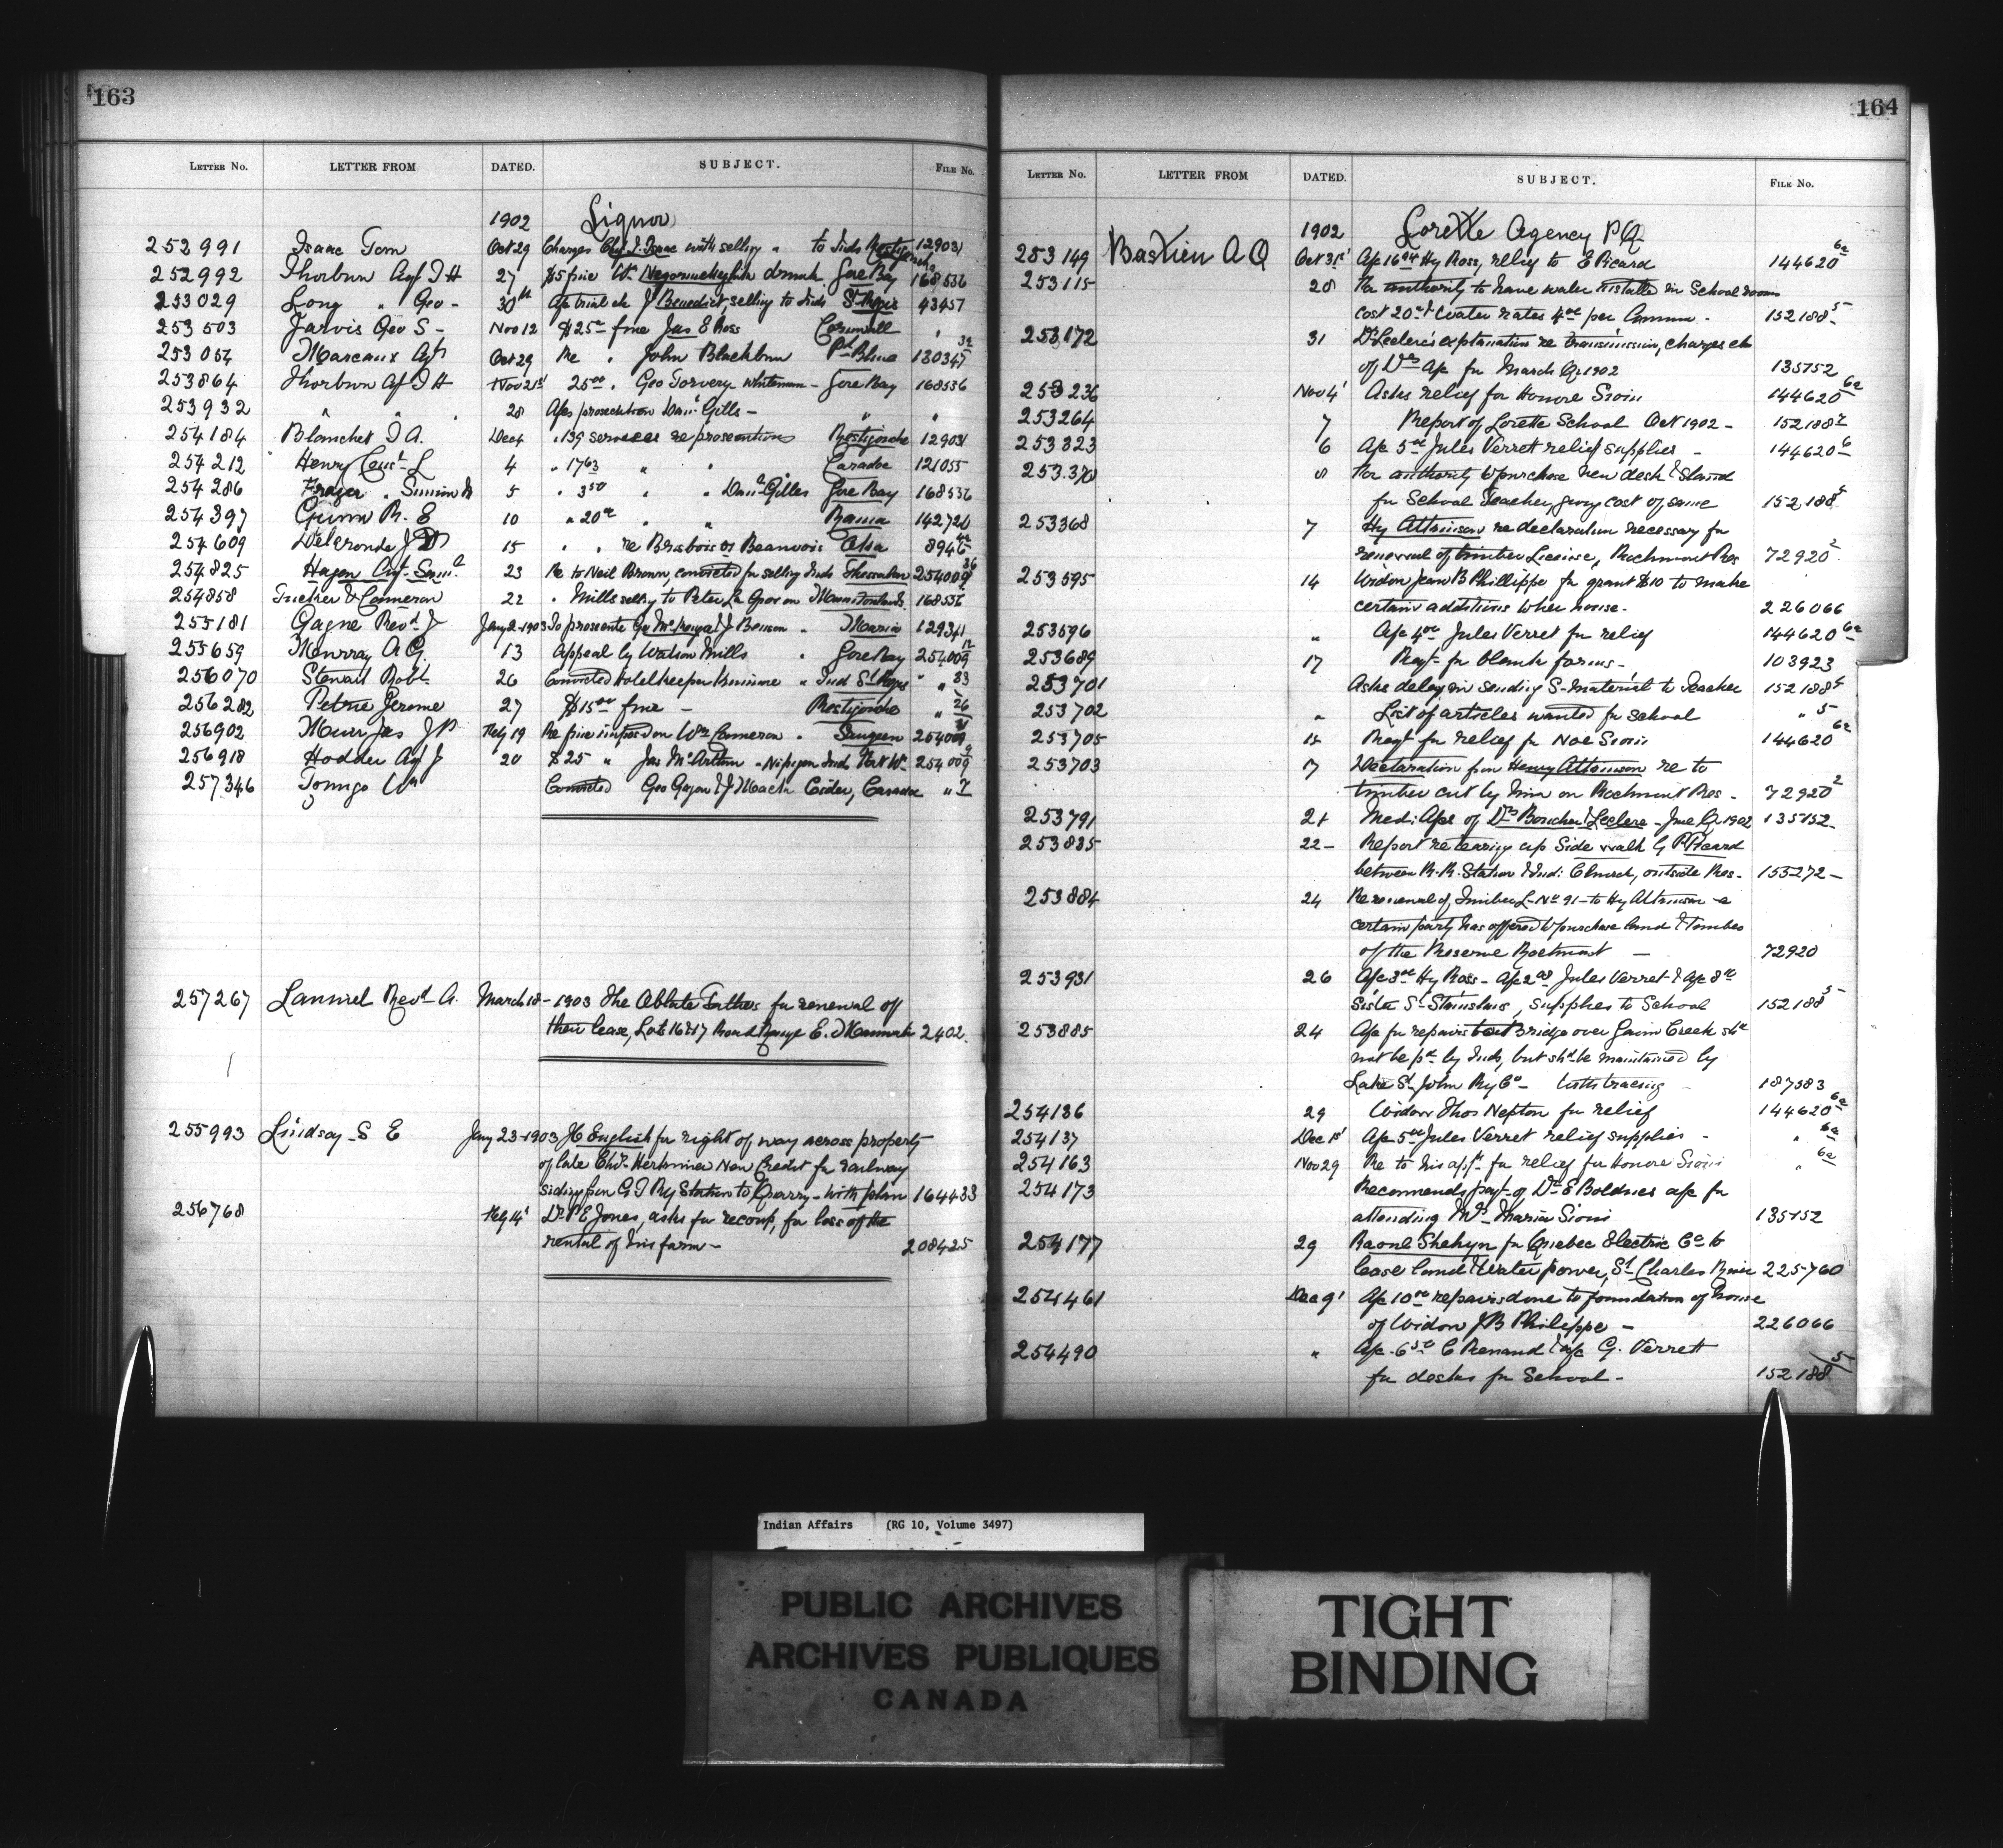 163
LETTER NO. LETTER FROM DATED. SUBJECT. FILE NO.
1902 Liquor
252991 Isaac Tom Oct 29 Charges Chf J. Isaac with selling " to Inds Restigouche 12903
252992 Thorburn Agt I H 27 $5 fine Wm drunk Gore Bay 168536
253029 Long " Geo - 30th afc trial etc J Benedict, selling to Inds St Regis 43457
253503 Jarvis Geo S - Nov 12 $25 00 fine Jas E Ross Cornwall "
253054 Marceaux Agt Oct 29 Re " John Blackburn Pt Blue 130347
253864 Thorburn Agt I H Nov 21st 25 00 " Geo Torvery whiteman - Gore Bay 168536
253932 " " 28 Afcs prosecution Danl Gills - " "
254184 Blanchet I A. Dec 4 " 139 services re prosecutions Restigouche 12903
254212 Henry L 4 " 17 63 " " Caradoc 121055
254286 Frazer " 5 " 3 50 " " Danl Gilles Gore Bay 168536
254397 Gunn R. E 10 " 20 00 " " Rama 142720
254609 Delgronde J D 15 " " re Brisbois or Beauvois Oka 8946
254825 Hagan Agt. Saml. 23 Re to Neil Brown, convicted for selling Inds Thessalon 254009 36
254858 Tucker & Cameron 22 " Mills selling to Peter La 168536
255181 Gagne Revd J Jany 2-1903 To prosecute J Benson " Maria 12934
255659 Murray A G. 13 Appeal by Watson Mills " Gore Bay 254009 12
256070 Stewart Robt. 26 Convicted hotel keeper " Ind St Regis " " 33
256282 Petrie Jerome 27 $15 00 fine - Restigouche " 26
256902 Muir Jas J P Feby 19 Re fine imposed on Wm Cameron " Saugeen 254009
256918 Hodder Agt J 20 $25 " Jas McArthur - Nipigon Inds Port Wm 254009 9
257346 Tomgo Wm Convicted Geo Gazon & J Cider, Caradoc " 7
257267 Revd A. March 18-1903 The Oblate Fathers for renewal of
their lease, Lots 16 & 17 Range E. 2402.
255993 Lindsay S E Jany 23-1903 J C English for right of way across property
of late Chr. New Credit for railway
siding from G T Ry Station to Quarry - with plan 164433
256768 Feby 14' Dr P E Jones, asks for recoup, for loss of the
rental of his farm - 208425
164
LETTER NO. LETTER FROM DATED. SUBJECT. FILE NO.
1902 Lorette Agency P Q.
253149 Bastien A O Oct 31st Afc 16 04 Hy Ross, relief to E Picard 144620 6a
253115 28 For authority to have water installed in School rooms
cost 20 00 & water rates 4 00 per annum - 152188 5
253172 31 Dr Leclerc's explanation re transmission, charges etc
of Drs afc for March Qr 1902 135752
253236 Nov 4' Asks relief for Honore Sioui 144620 6a
253264 7 Report of Lorette School Oct 1902 - 152188 2
253323 6 Afc 5 00 Jules Verrett relief supplies - 144620 6
253.370 8 For authority to purchase new desk & Stand
for School Teacher, giving cost of same 152188 5
253368 7 Hy Atkinson re declaration necessary for
renewal of timber License, Rockmont Res 72920 2
253595 14 Widow Jean B Phillippe for grant $10 to make
certain additions to her house - 226066
253596 " Afc 4 00 Jules Verret for relief 144620 6a
253689 17 Reqt- for blank forms - 103923
253701 Asks delay in sending S-material to Teacher 152188 5
253702 " List of articles wanted for school " 5
253705 15 Reqt for relief for Noe Sioui 144620 6a
253703 17 Declaration from Henry Atkinson re to
timber cut by him on Rockmont Res - 72920 2
253791 21 Medi. Afcs of Drs Boucher & Leclerc - June Qr 1902 135752
253835 22 - Report re tearing up Side walk by P Picard
between R. R. Station & Ind: Church, outside Res - 155272 -
253884 24 Re renewal of, Timber L- No 91 - to Hy Atkinson - a
certain party has offered to purchase land & timber
of the Reserve Rockmont - 72920
253931 26 Afc 3 00 Hy Ross - afc 2 08 Jules Verret & afc 8 00
Sister St Stanislaus, supplies to School 152188 5
253885 24 Afc for repairs to Bridge over Creek shd
not be pd by Inds, but shd be maintained by
Lake St John Ry Co - with tracing - 187583
254136 29 Widow Thos Nepton for relief 144620 6a
254137 Dec 1st Afc 5 00 Jules Verret relief supplies - " 6a
254163 Nov 29 Re to his app. for relief for Honore Sioui " 6a
254173 Recommends payt- of Dr E afc for
attending Mrs Maria Sioui 135752
254177 29 Raoul Shehyn for Quebec Electric Co to
lease land & Water power, St Charles River 225760
254461 Dec 9' Afc 10 00 repairs done to foundation of house
of Widow J B Philippe - 226066
254490 " Afc. 6 50 C Renaud & afc G. Verrett
for desks for School - 152188 5
Indian Affairs (RG 10, Volume 3497)
PUBLIC ARCHIVES
ARCHIVES PUBLIQUES
CANADA
TIGHT
BINDING